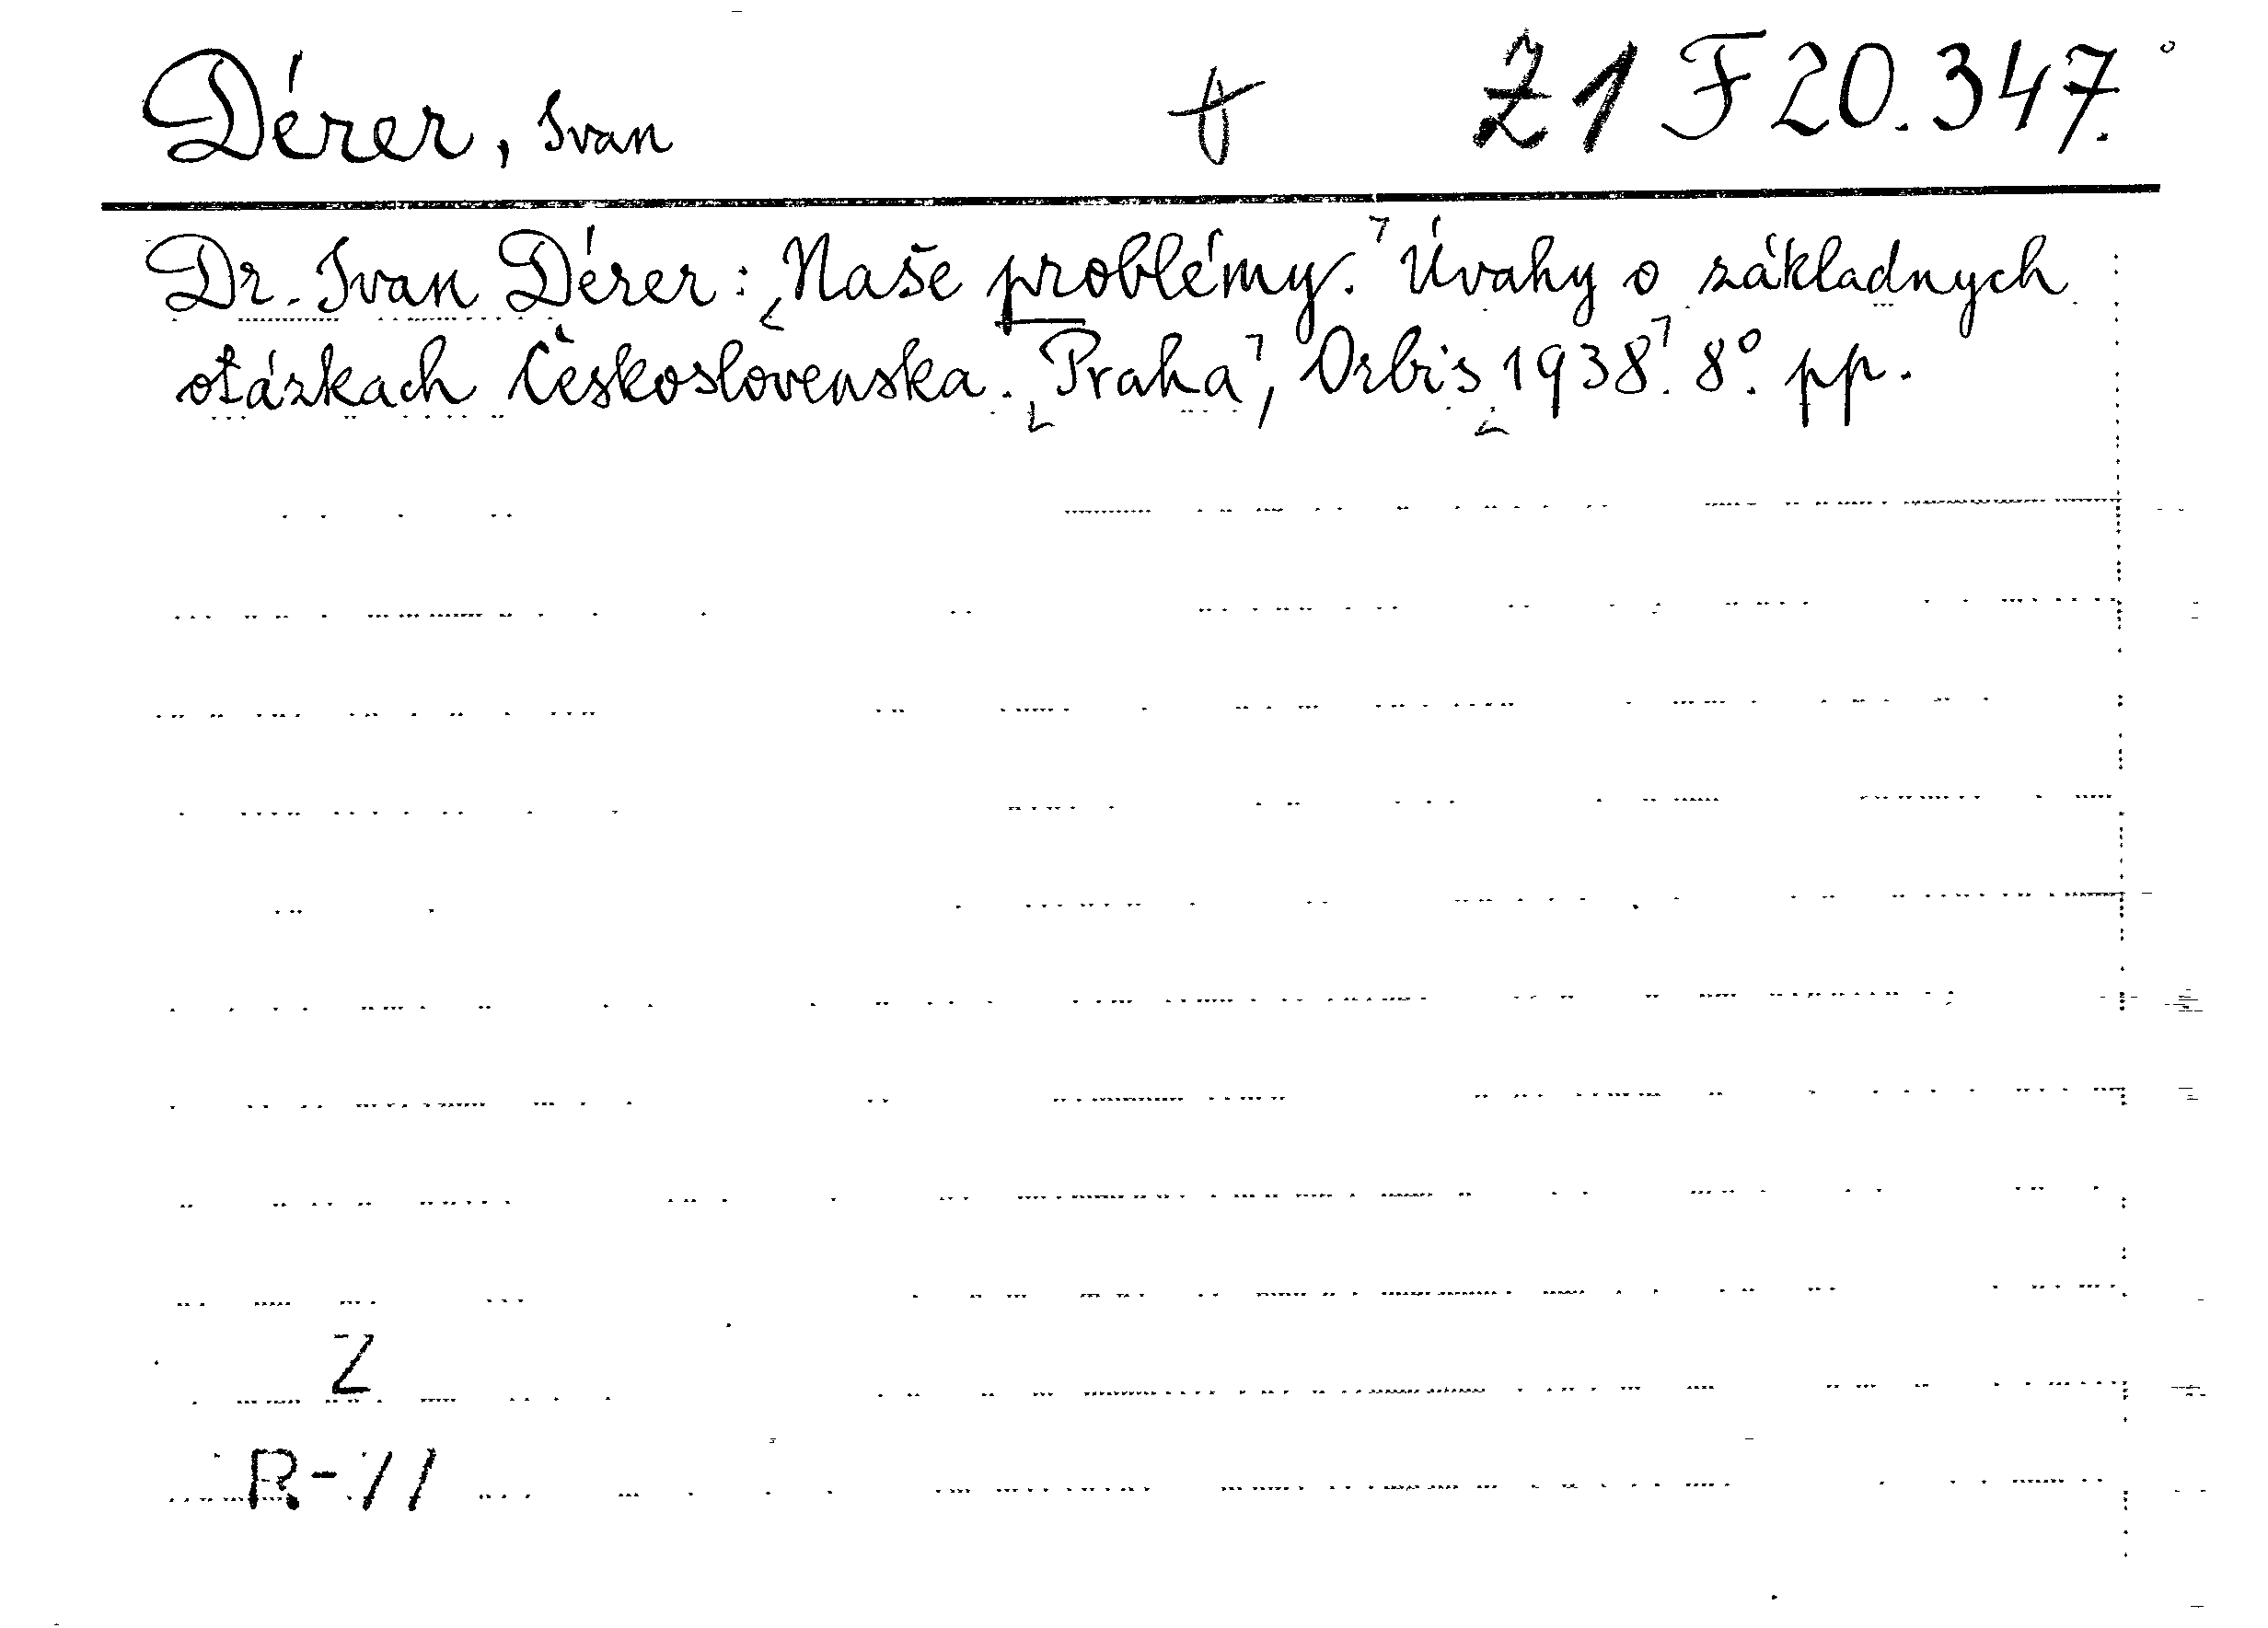 Dérer, Ivan Z1 F 20.347.
Dr. Ivan Dérer: Naše problémy. Úvahy o základnych
otázkach Československa. Praha, Orbis 1938. 8° pp.
Z
R-11